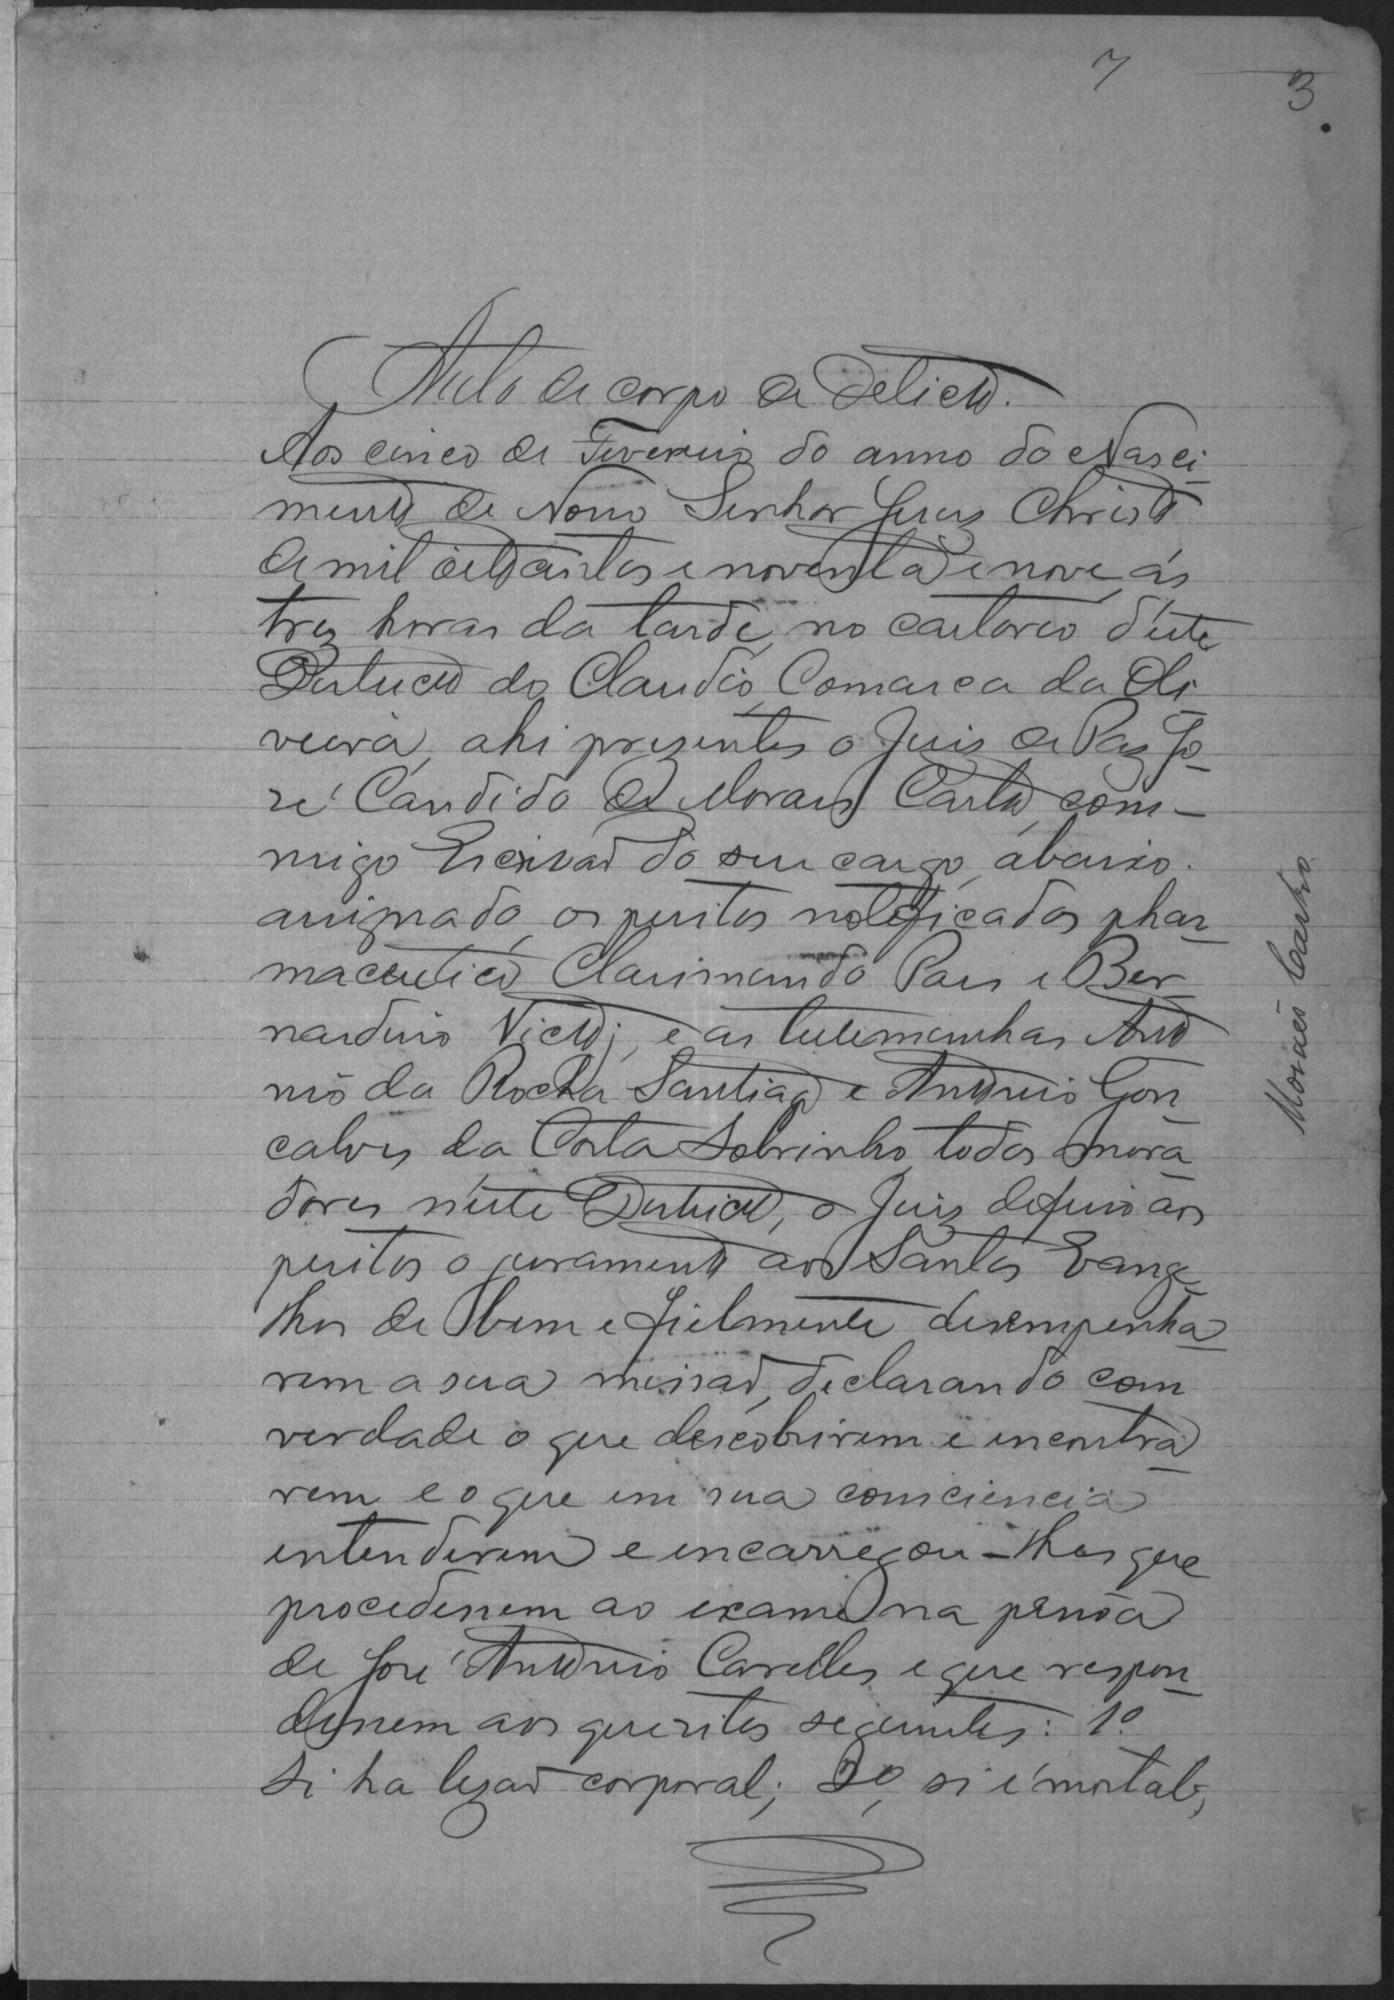 7
3
Auto de corpo de delicto.
Aos cinco de Fevereiro do anno do Nasci-
mento de Nosso Senhor Jesus Christo
de mil oitocentos e noventa e nove, ás
tres horas da tarde, no cartorio d'este
Districto do Claudio, Comarca da Oli
veira, ahi presentes o Juiz de Paz Jo-
sé Candido de Moraes Castro, com-
migo Escrivaõ do seu cargo, abaixo
assignado, os peritos notificados phar-
maceutico Clarimundo Paes e Ber-
nardino Victoi, e as testemunhas Anto
nio da Rocha Santiago e Antonio Gon
calves da Costa Sobrinho, todos mora-
dores n'este Districto, o Juiz deferio aos
peritos o juramento aos Santos Evange-
lhos de bem e fielmente desempenha-
rem a sua missaõ, declarando com
verdade o que descobrirem e encontra-
rem e o que em sua consciencia
entenderem e encarregou-lhes que
procedessem ao exame na pessôa
de José Antonio Carelles e que respon-
dessem aos quesitos seguintes: 1º
Si ha lezaõ corporal; 2º, si é mortal;
Moraes Castro